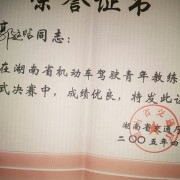 荣誉证书
同志：
在湖南省机动车驾驶青年教练
式决赛中，成绩优良，特发此证
湖南省交通厅
二〇〇五年四